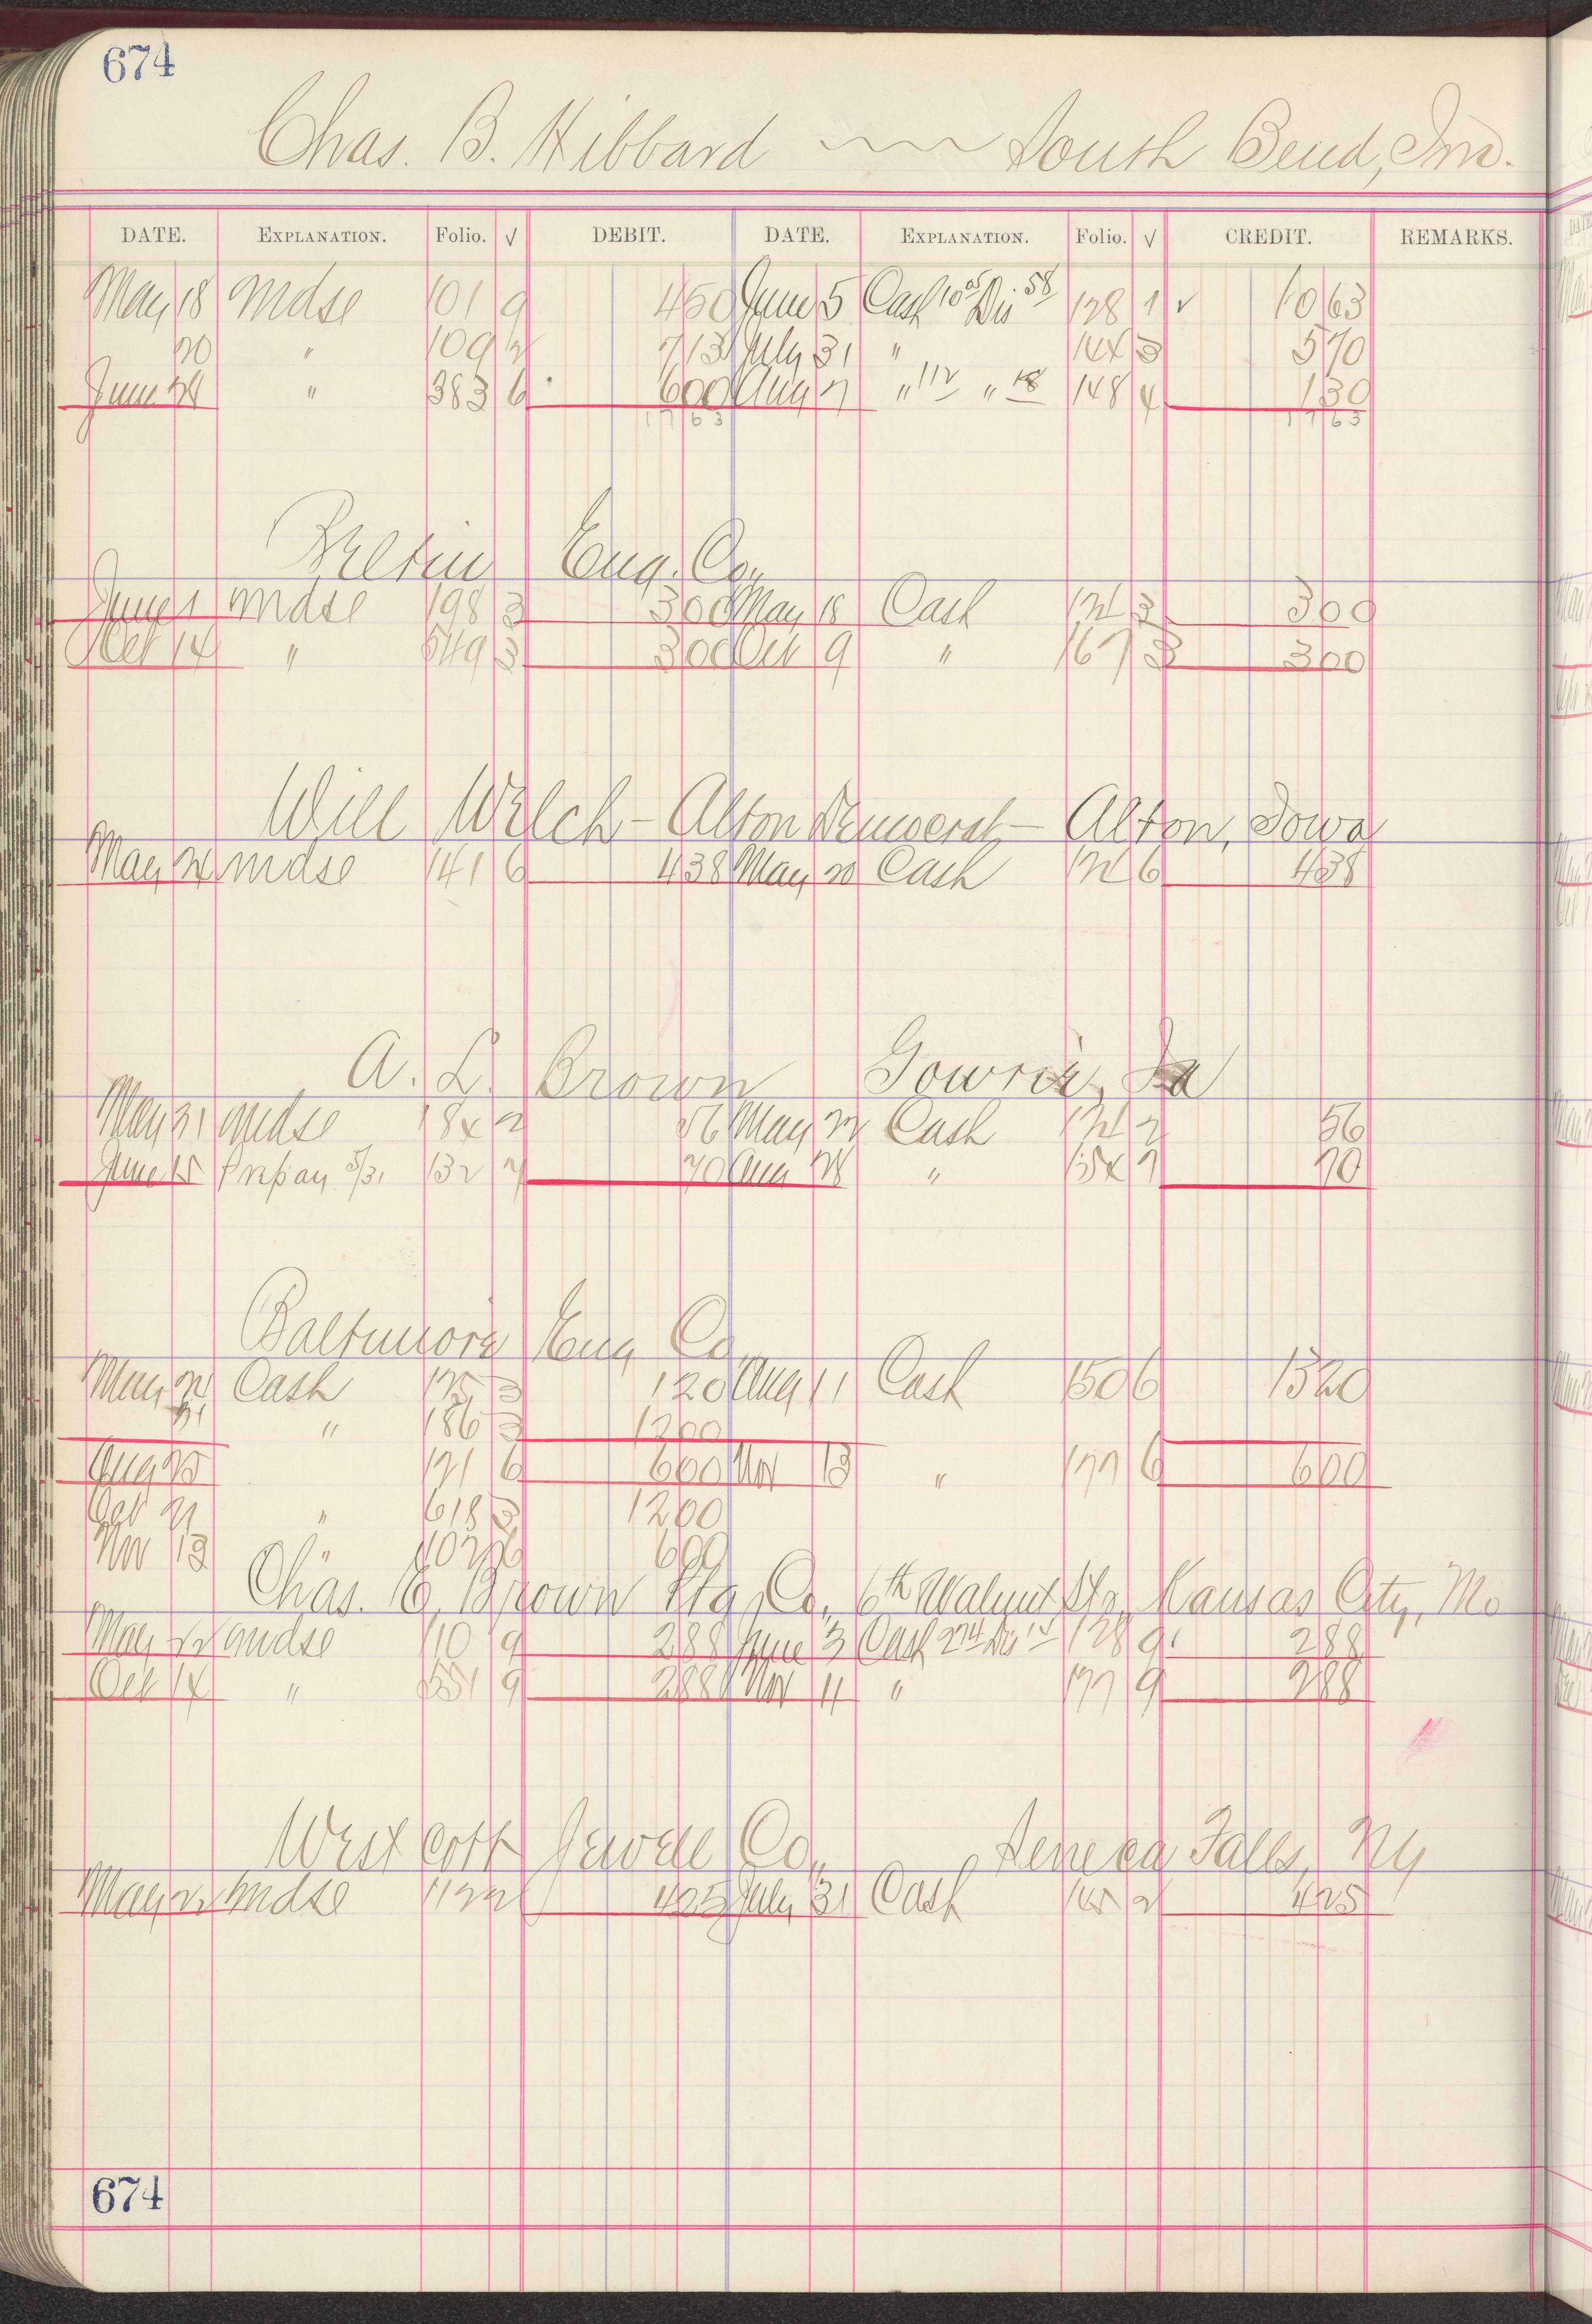 674
Chas. B. Hibbard — South Bend, Ind.
DATE. EXPLANATION. Folio. √ DEBIT. DATE. EXPLANATION. Folio. √ CREDIT. REMARKS.
May 18 Mdse 101 9 450 June 5 Cash 10 05 Dis 58 128 1 √ 10 63
20 " 109 2 7 13 July 31 " 144 3 5 70
June 24 " 383 6 600 Aug 7 " 112 " 18 148 4 1 30
17 63 17 63
Eng. Co.
June 1 Mdse 198 3 300 May 18 Cash 121 3 300
Oct 14 " 549 3 300 Oct 9 " 167 3 300
Will Welch – Alton Democrat – Alton, Iowa
May 24 Mdse 141 6 438 May 20 Cash 121 6 438
A. L. Brown Gowrie, Ia
May 31 Mdse 184 2 56 May 22 Cash 121 2 56
June 15 Prepay 5/31 132 7 70 Aug 28 " 154 7 70
Baltimore Eng Co.
May 21 Cash 125 3 120 Aug 11 Cash 150 6 1320
31 " 186 3 1200
Aug 25 171 6 600 Nov 13 " 177 6 600
Oct 21 " 618 3 1200
Nov 13 " 600
Chas. E. Brown Ptg Co. 6th Walnut Sts, Kansas City, Mo
May 22 Mdse 110 9 288 June 3 Cash 128 9 288
Oct 14 " 551 9 288 Nov 11 " 177 9 288
Westcott Jewell Co. Seneca Falls, NY
May 22 Mdse 112 2 425 July 31 Cash 145 2 425
674